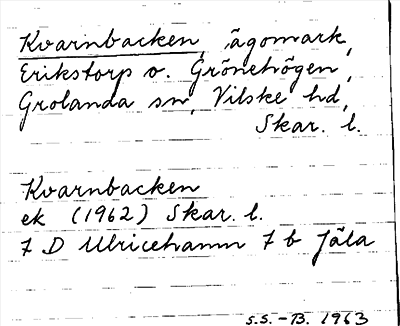 Kvarnbacken, ägomark,
Erikstorp o. Grönehögen,
Grolanda sn, Vilske hd,
Skar. l.
Kvarnbacken
ek (1962) Skar. l.
7 D Ulricehamn 7 b Jäla
S.S.-B. 1963